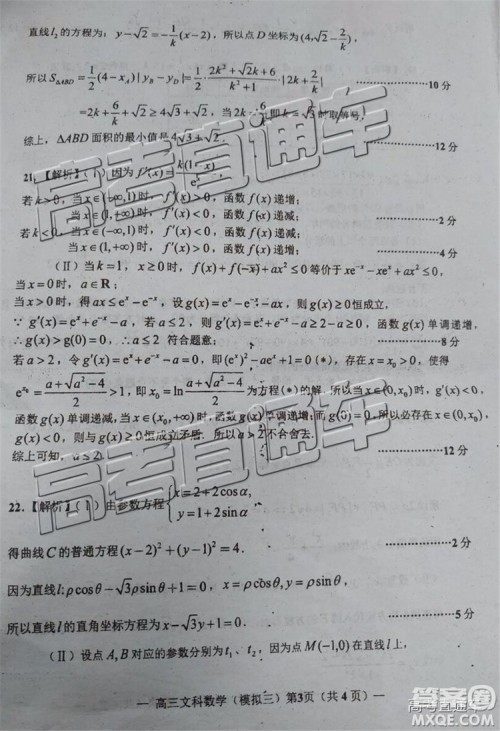 直线l₂的方程为：y-√2=-1/k(x-2)，所以点D坐标为(4,√2-2/k)，
所以S△ABD=1/2(4-x_A)|y_B-y_D|=1/2·(2k²+√2k+6)/(k²+1)·|2k+2/k| ……10分
=2k+6/k+√2≥4√3+√2，当2k=6/k即k=√3时取等号，
综上，△ABD面积的最小值是4√3+√2. ……12分
21.【解析】(Ⅰ)因为f′(x)=k(1-x)/eˣ
若k>0，当x∈(-∞,1)时，f′(x)>0，函数f(x)递增；
当x∈(1,+∞)时，f′(x)<0，函数f(x)递减； ……2分
若k<0，当x∈(-∞,1)时，f′(x)<0，函数f(x)递减；
当x∈(1,+∞)时，f′(x)>0，函数f(x)递增； ……4分
(Ⅱ)当k=1，x≥0时，f(x)+f(-x)+ax²≤0等价于xe⁻ˣ-xeˣ+ax²≤0，
当x=0时，a∈R；
当x>0时，得ax≤eˣ-e⁻ˣ，设g(x)=eˣ-e⁻ˣ-ax，则g(x)≥0恒成立，
∵g′(x)=eˣ+e⁻ˣ-a，若a≤2，则g′(x)=eˣ+e⁻ˣ-a≥2-a≥0，函数g(x)单调递增，
∴g(x)>g(0)=0，∴a≤2符合题意； ……8分
若a>2，令g′(x)=eˣ+e⁻ˣ-a=0，即(eˣ)²-aeˣ+1=0(*)，存在x=x₀，使得
e^{x₀}=(a+√(a²-4))/2>1，即x₀=ln((a+√(a²-4))/2)为方程(*)的解，当x∈(0,x₀)时，g′(x)<0，
函数g(x)单调递减，当x∈(x₀,+∞)时，g′(x)>0，函数g(x)单调递增；而g(0)=0，所以必存在x∈(0,x₀)，
使g(x)<0，则与g(x)≥0恒成立矛盾．所以a>2不合舍去．
综上可知，a≤2． ……12分
22.【解析】(Ⅰ)由参数方程{x=2+2cosα, y=1+2sinα
得曲线C的普通方程(x-2)²+(y-1)²=4． ……2分
因为直线l：ρcosθ-√3ρsinθ+1=0，x=ρcosθ,y=ρsinθ，
所以直线l的直角坐标方程为x-√3y+1=0． ……5分
(Ⅱ)设点A,B对应的参数分别为t₁、t₂，因为点M(-1,0)在直线l上，
— 高三文科数学（模拟三）第3页（共4页）—
高考直通车
高考直通车
高考直通车
答案圈
MXQE.COM